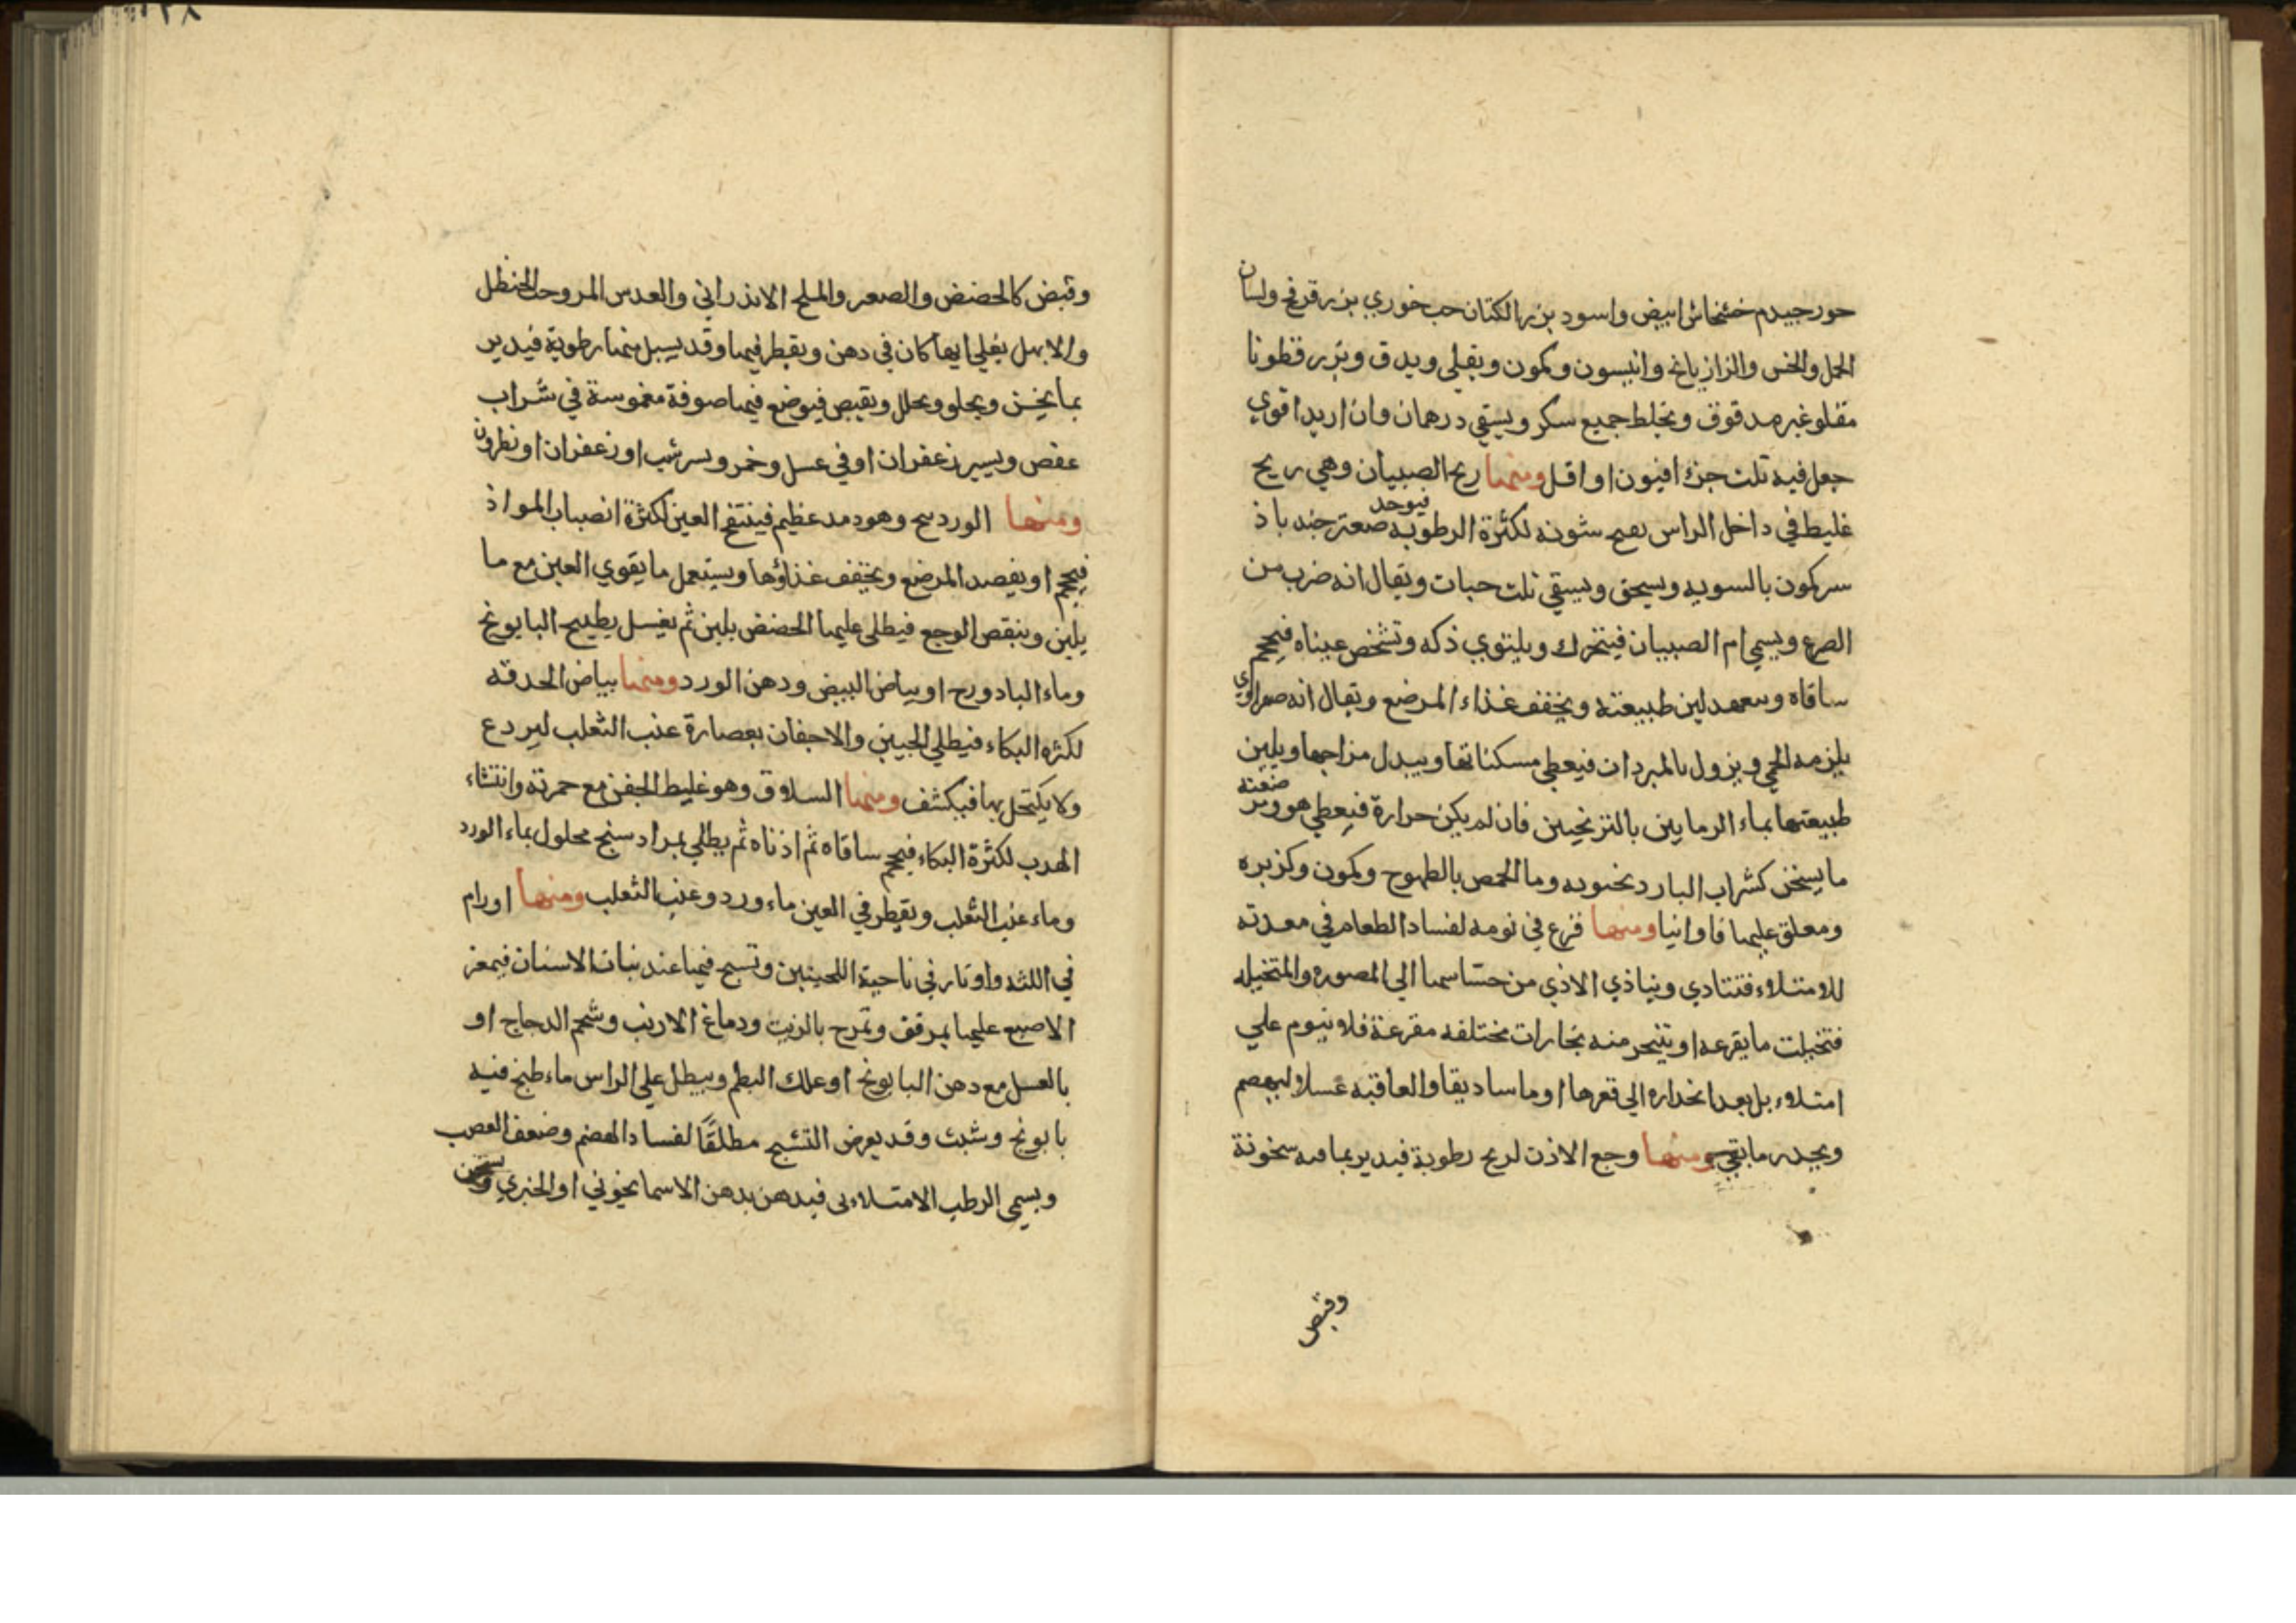 حور جيدم خشخاش ابيض واسود بزر الكتان حب خوري بزر قرفح ولسان
الحمل والخس والزازيانج وانيسون وكمون ويقلي ويدق وبزر قطونا
مقلو غير مدقوق ويخلط جميع سكر ويسقي درهمان وان اريد اقوي
جعل فيه ثلث جزء افيون او اقل ومنها ريح الصبيان وهي ريح
غليط في داخل الراس شونه لكثرة الرطوبه فيوخد صعتر جندباذ
ستر كمون بالسويه ويسحق ويسقي ثلث حبات ويقال انه ضرب من
الصرع ويسمي ام الصبيان فيتحرك ويلتوي ذكه وتشخص عيناه فيحجم
ساقاه لين طبيعته ويخفف غذاء المرضع ويقال انه صفراوي
يلزمه الحمي ويزول بالمبردان فيعطي مسكناتها ويبدل مزاجها ويلين
طبيعتها بماء الرمايين بالترنجبين فان لم يكن حرارة فيعطي هو ومرضعته
ما يسخن كشراب البارد نحبويه وما الحمص بالطهوج وكمون وكزبره
ومعلق عليها فاوانيا ومنها فزع في نومه لفساد الطعام في معدته
للامتلاء فتتادي ويتاذي الاذي من حساسها الي المصوره والمتخيله
فتخيلت ما يفزعه او تتبخر منه بخارات مختلفه مفزعة فلا ينوم علي
امتلاء بل بعد انحداره الي قعرها او ماساديقا والعاقبه عسلا ليهضم
ويحدر ما بقي ومنها وجع الاذن لريح رطوبة فيدير بما فيه سخونة
وقبض
وقبض كالحضض والصعتر والملح الاندراني والعدس المر وحب الحنظل
والابهل يغلي ايها كان في دهن ويقطر فيها وقد يسيل منها رطوبة فيدير
بما يخسن ويجلو ويحلل ويقبض فيوضع فيها صوفة مغموسة في شراب
عفص ويسير زعفران او في عسل وخمر ويسر شب او زعفران او نطرون
ومنها الوردسح وهو مد عظيم فينتفخ العين لكثرة انصباب المواذ
فيحجم او يفصد المرضع ويخفف غذاؤها ويستعمل ما يقوي العين مع ما
يلين وينقص الوجع فيطلي عليها الحضض بلبن ثم يغسل بطبيح البابونج
وماء البادورح او بياض البيض ودهن الورد ومنها بياض الحدقه
لكثره البكاء فيطلي الجبين والاجفان بعصارة عنب الثعلب ليردع
ولا يكتحل بها فيكشف ومنها السلاق وهو غليط الجفن مع حمرته وانتثاء
الهدب لكثرة البكاء فيحجم ساقاه ثم اذناه ثم يطلي بمرادسنج محلول بماء الورد
وماء عنب الثعلب ويقطر في العين ماء ورد وعنب الثعلب ومنها اورام
في اللثه واوتار في ناحية اللحيين وتسبح فيها عند نبات الاسنان فيغمز
الاصبع عليها برفق وتمرح بالزيت ودماغ الارنب وشحم الدجاج او
بالعسل مع دهن البابونج او علك البطم ويبطل علي الراس ماء طبخ فيه
بابونج وشبث وقد يعرض التشبح مطلقًا لفساد الهضم وضعف العصب
ويسمي الرطب الامتلاءي فيدهن بدهن الاسمانخوني او الخيري